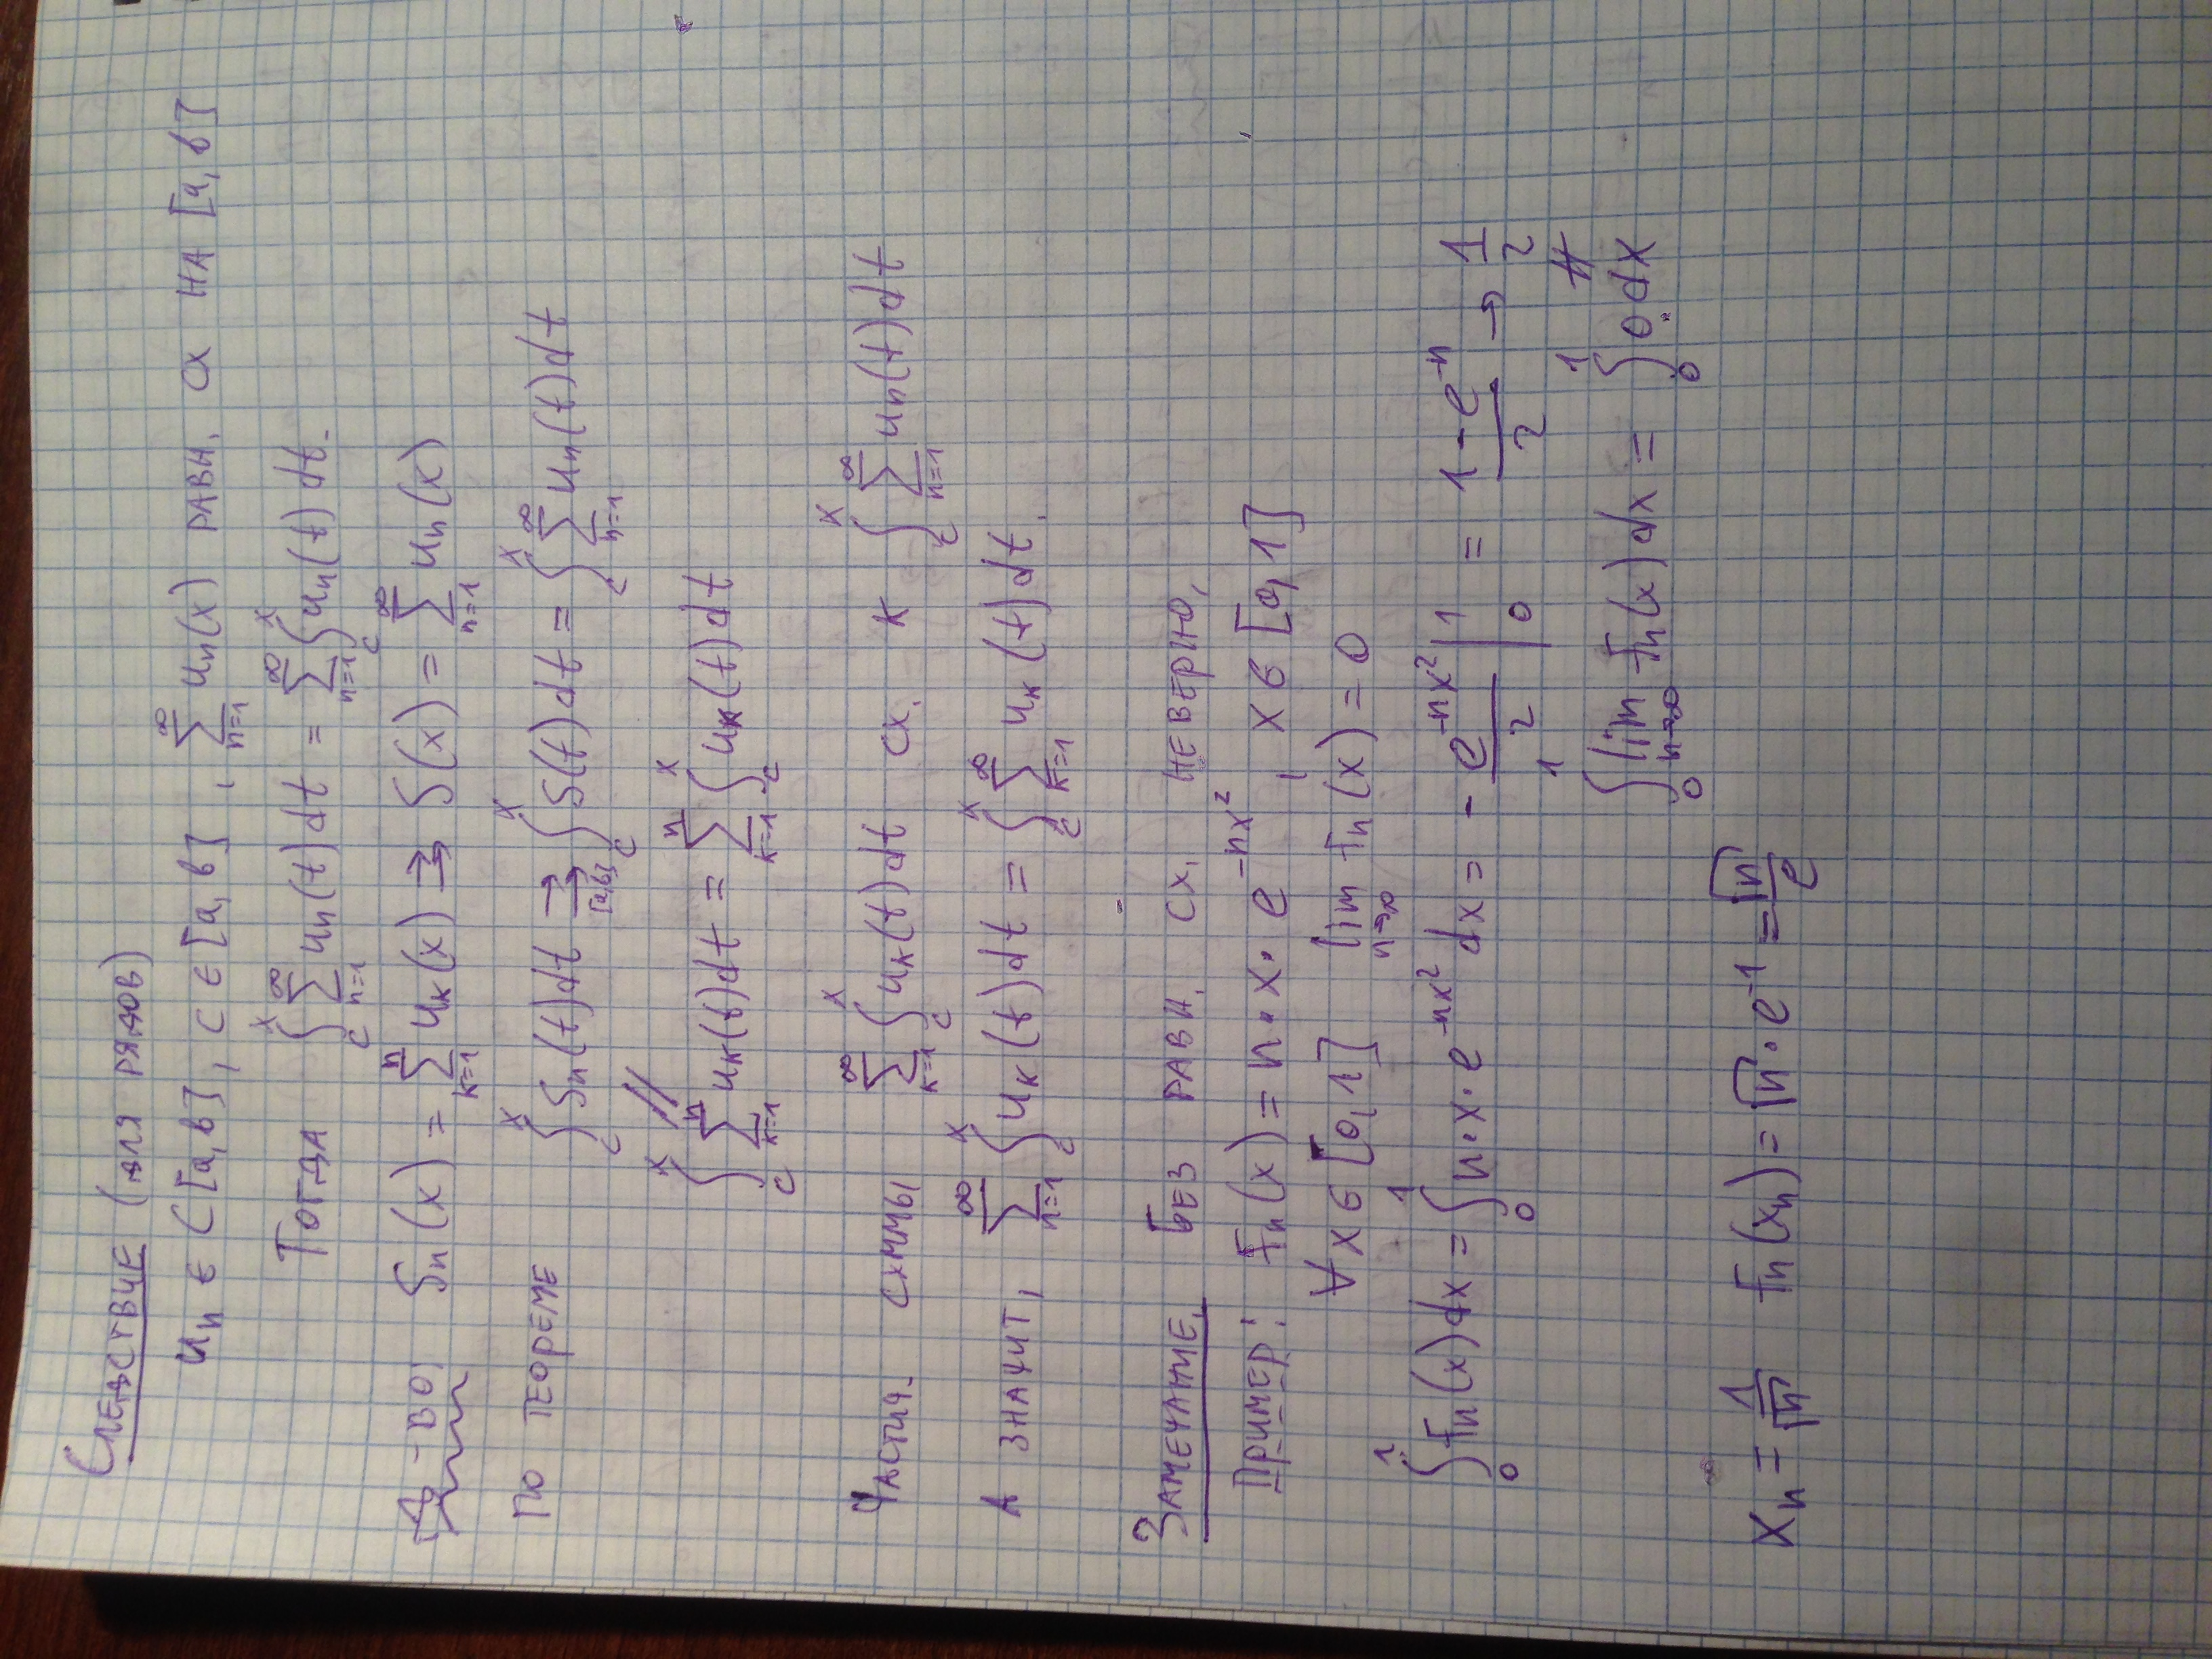 Следствие (для рядов)
uₙ ∈ C[a,b], c ∈ [a,b], ∑_{n=1}^{∞} uₙ(x) равн. сх на [a,b]
Тогда ∫_c^x ∑_{n=1}^{∞} uₙ(t)dt = ∑_{n=1}^{∞} ∫_c^x uₙ(t)dt.
Д-во: Sₙ(x) = ∑_{k=1}^{n} uₖ(x) ⇉ S(x) = ∑_{n=1}^{∞} uₙ(x)
По теореме ∫_c^x Sₙ(t)dt ⇉_{[a,b]} ∫_c^x S(t)dt = ∫_c^x ∑_{n=1}^{∞} uₙ(t)dt
//
∫_c^x ∑_{k=1}^{n} uₖ(t)dt = ∑_{k=1}^{n} ∫_c^x uₖ(t)dt
Частич. суммы ∑_{k=1}^{∞} ∫_c^x uₖ(t)dt сх. к ∫_c^x ∑_{n=1}^{∞} uₙ(t)dt
А значит, ∑_{n=1}^{∞} ∫_c^x uₖ(t)dt = ∫_c^x ∑_{k=1}^{∞} uₖ(t)dt.
Замечание. Без равн. сх. неверно.
Пример: fₙ(x) = n·x·e^{-nx²}, x ∈ [0,1]
∀x ∈ [0,1] lim_{n→∞} fₙ(x) = 0
∫_0^1 fₙ(x)dx = ∫_0^1 n·x·e^{-nx²} dx = - e^{-nx²}/2 |_0^1 = (1-e^{-n})/2 → 1/2
≠
∫_0^1 lim_{n→∞} fₙ(x)dx = ∫_0^1 0.dx
xₙ = 1/√n fₙ(xₙ) = √n·e^{-1} = √n/e